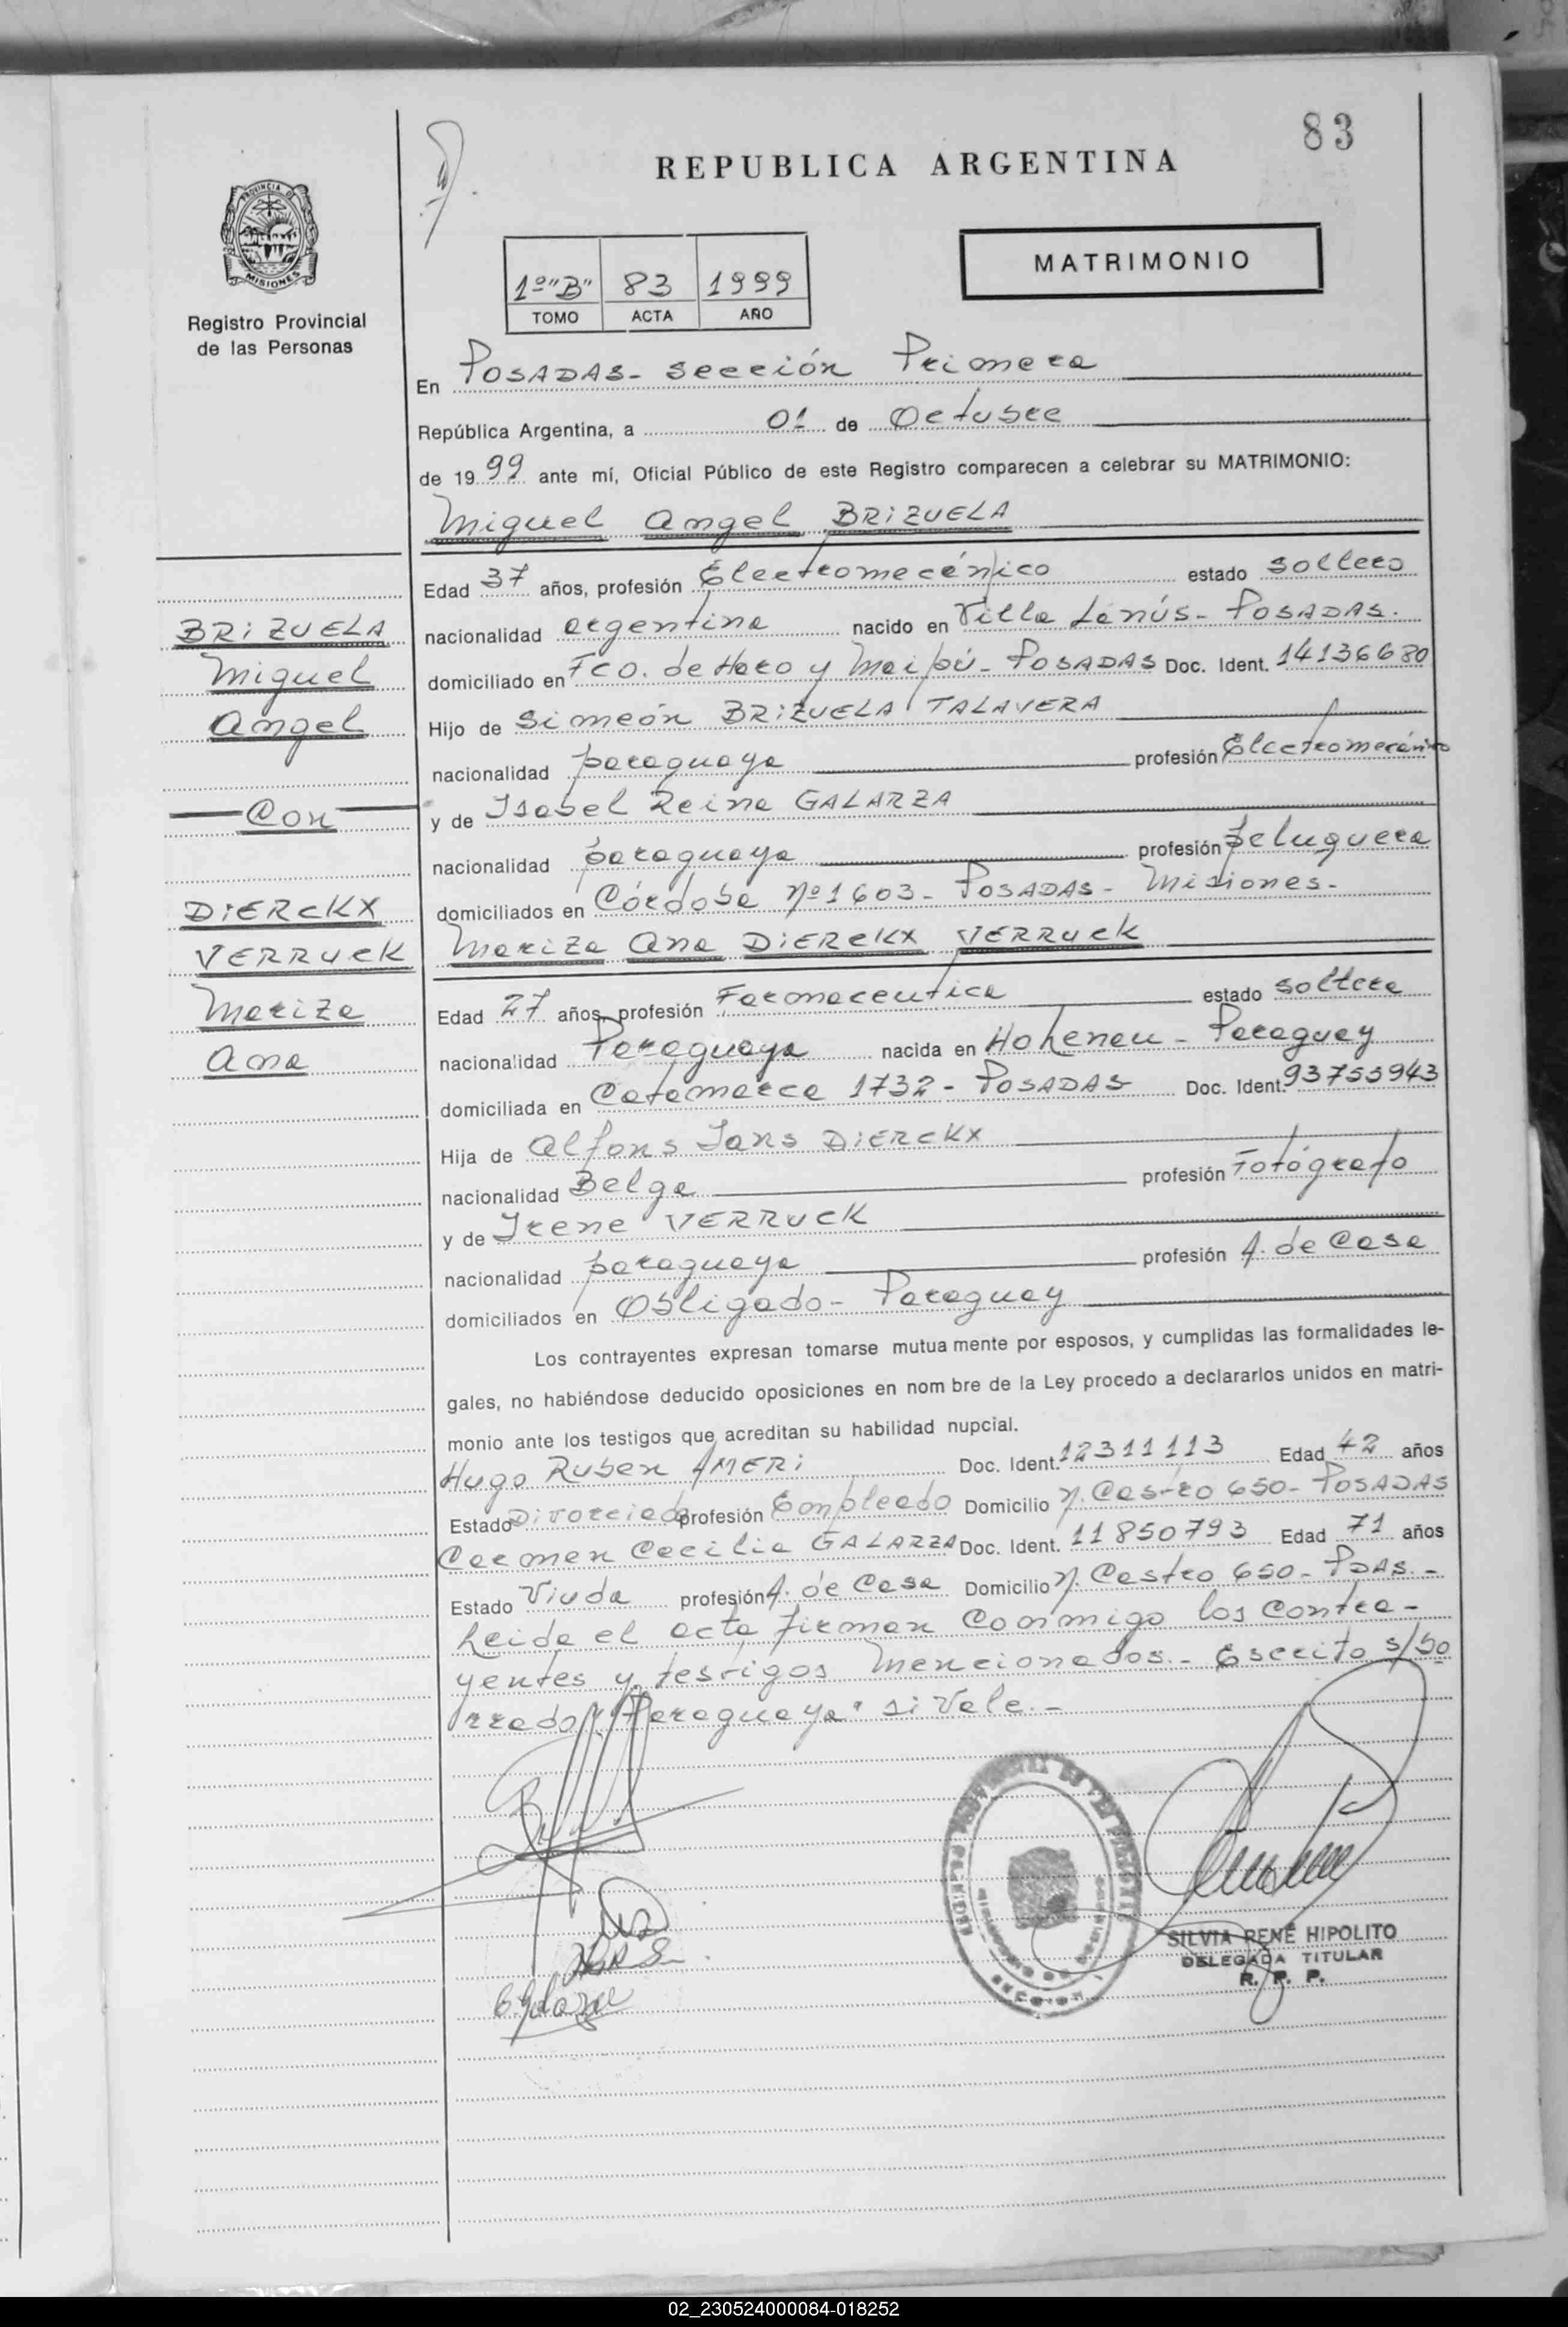 83
REPUBLICA ARGENTINA
PROVINCIA DE
MISIONES
Registro Provincial
de las Personas
1º "B" 83 1999
TOMO ACTA AÑO
MATRIMONIO
En POSADAS - Sección Primera
República Argentina, a 01 de Octubre
de 1999 ante mí, Oficial Público de este Registro comparecen a celebrar su MATRIMONIO:
Miguel Angel BRIZUELA
Edad 37 años, profesión Electromecánico estado soltero
nacionalidad argentina nacido en Villa Lanús - POSADAS.
domiciliado en Fco. de Haro y Maipú - POSADAS Doc. Ident. 14136680
Hijo de Simeón BRIZUELA TALAVERA
nacionalidad paraguaya profesión Electromecánico
y de Isabel Reina GALARZA
nacionalidad paraguaya profesión peluquera
domiciliados en Córdoba Nº 1603 - POSADAS - Misiones.
BRIZUELA
Miguel
Angel
Con
DIERCKX
VERRUCK
Mariza
Ana
Mariza Ana DIERCKX VERRUCK
Edad 27 años, profesión Farmaceutica estado soltera
nacionalidad Paraguaya nacida en Hohenau - Paraguay
domiciliada en Catamarca 1732 - POSADAS Doc. Ident. 93755943
Hija de Alfons Jans DIERCKX
nacionalidad Belga profesión Fotógrafo
y de Irene VERRUCK
nacionalidad paraguaya profesión A. de Casa
domiciliados en Obligado - Paraguay
Los contrayentes expresan tomarse mutuamente por esposos, y cumplidas las formalidades le-
gales, no habiéndose deducido oposiciones en nombre de la Ley procedo a declararlos unidos en matri-
monio ante los testigos que acreditan su habilidad nupcial.
Hugo Ruben AMERI Doc. Ident. 12311113 Edad 42 años
Estado Divorciado profesión Empleado Domicilio N. Castro 650 - POSADAS
Carmen Cecilia GALARZA Doc. Ident. 11850793 Edad 71 años
Estado Viuda profesión A. de Casa Domicilio N. Castro 650 - PDAS. -
Leida el acta, firman conmigo los contra-
yentes y testigos mencionados. - Escrito s/bo
rrado "Paraguaya" si Vale. -
SILVIA RENÉ HIPOLITO
DELEGADA TITULAR
R. P. P.
02_230524000084-018252